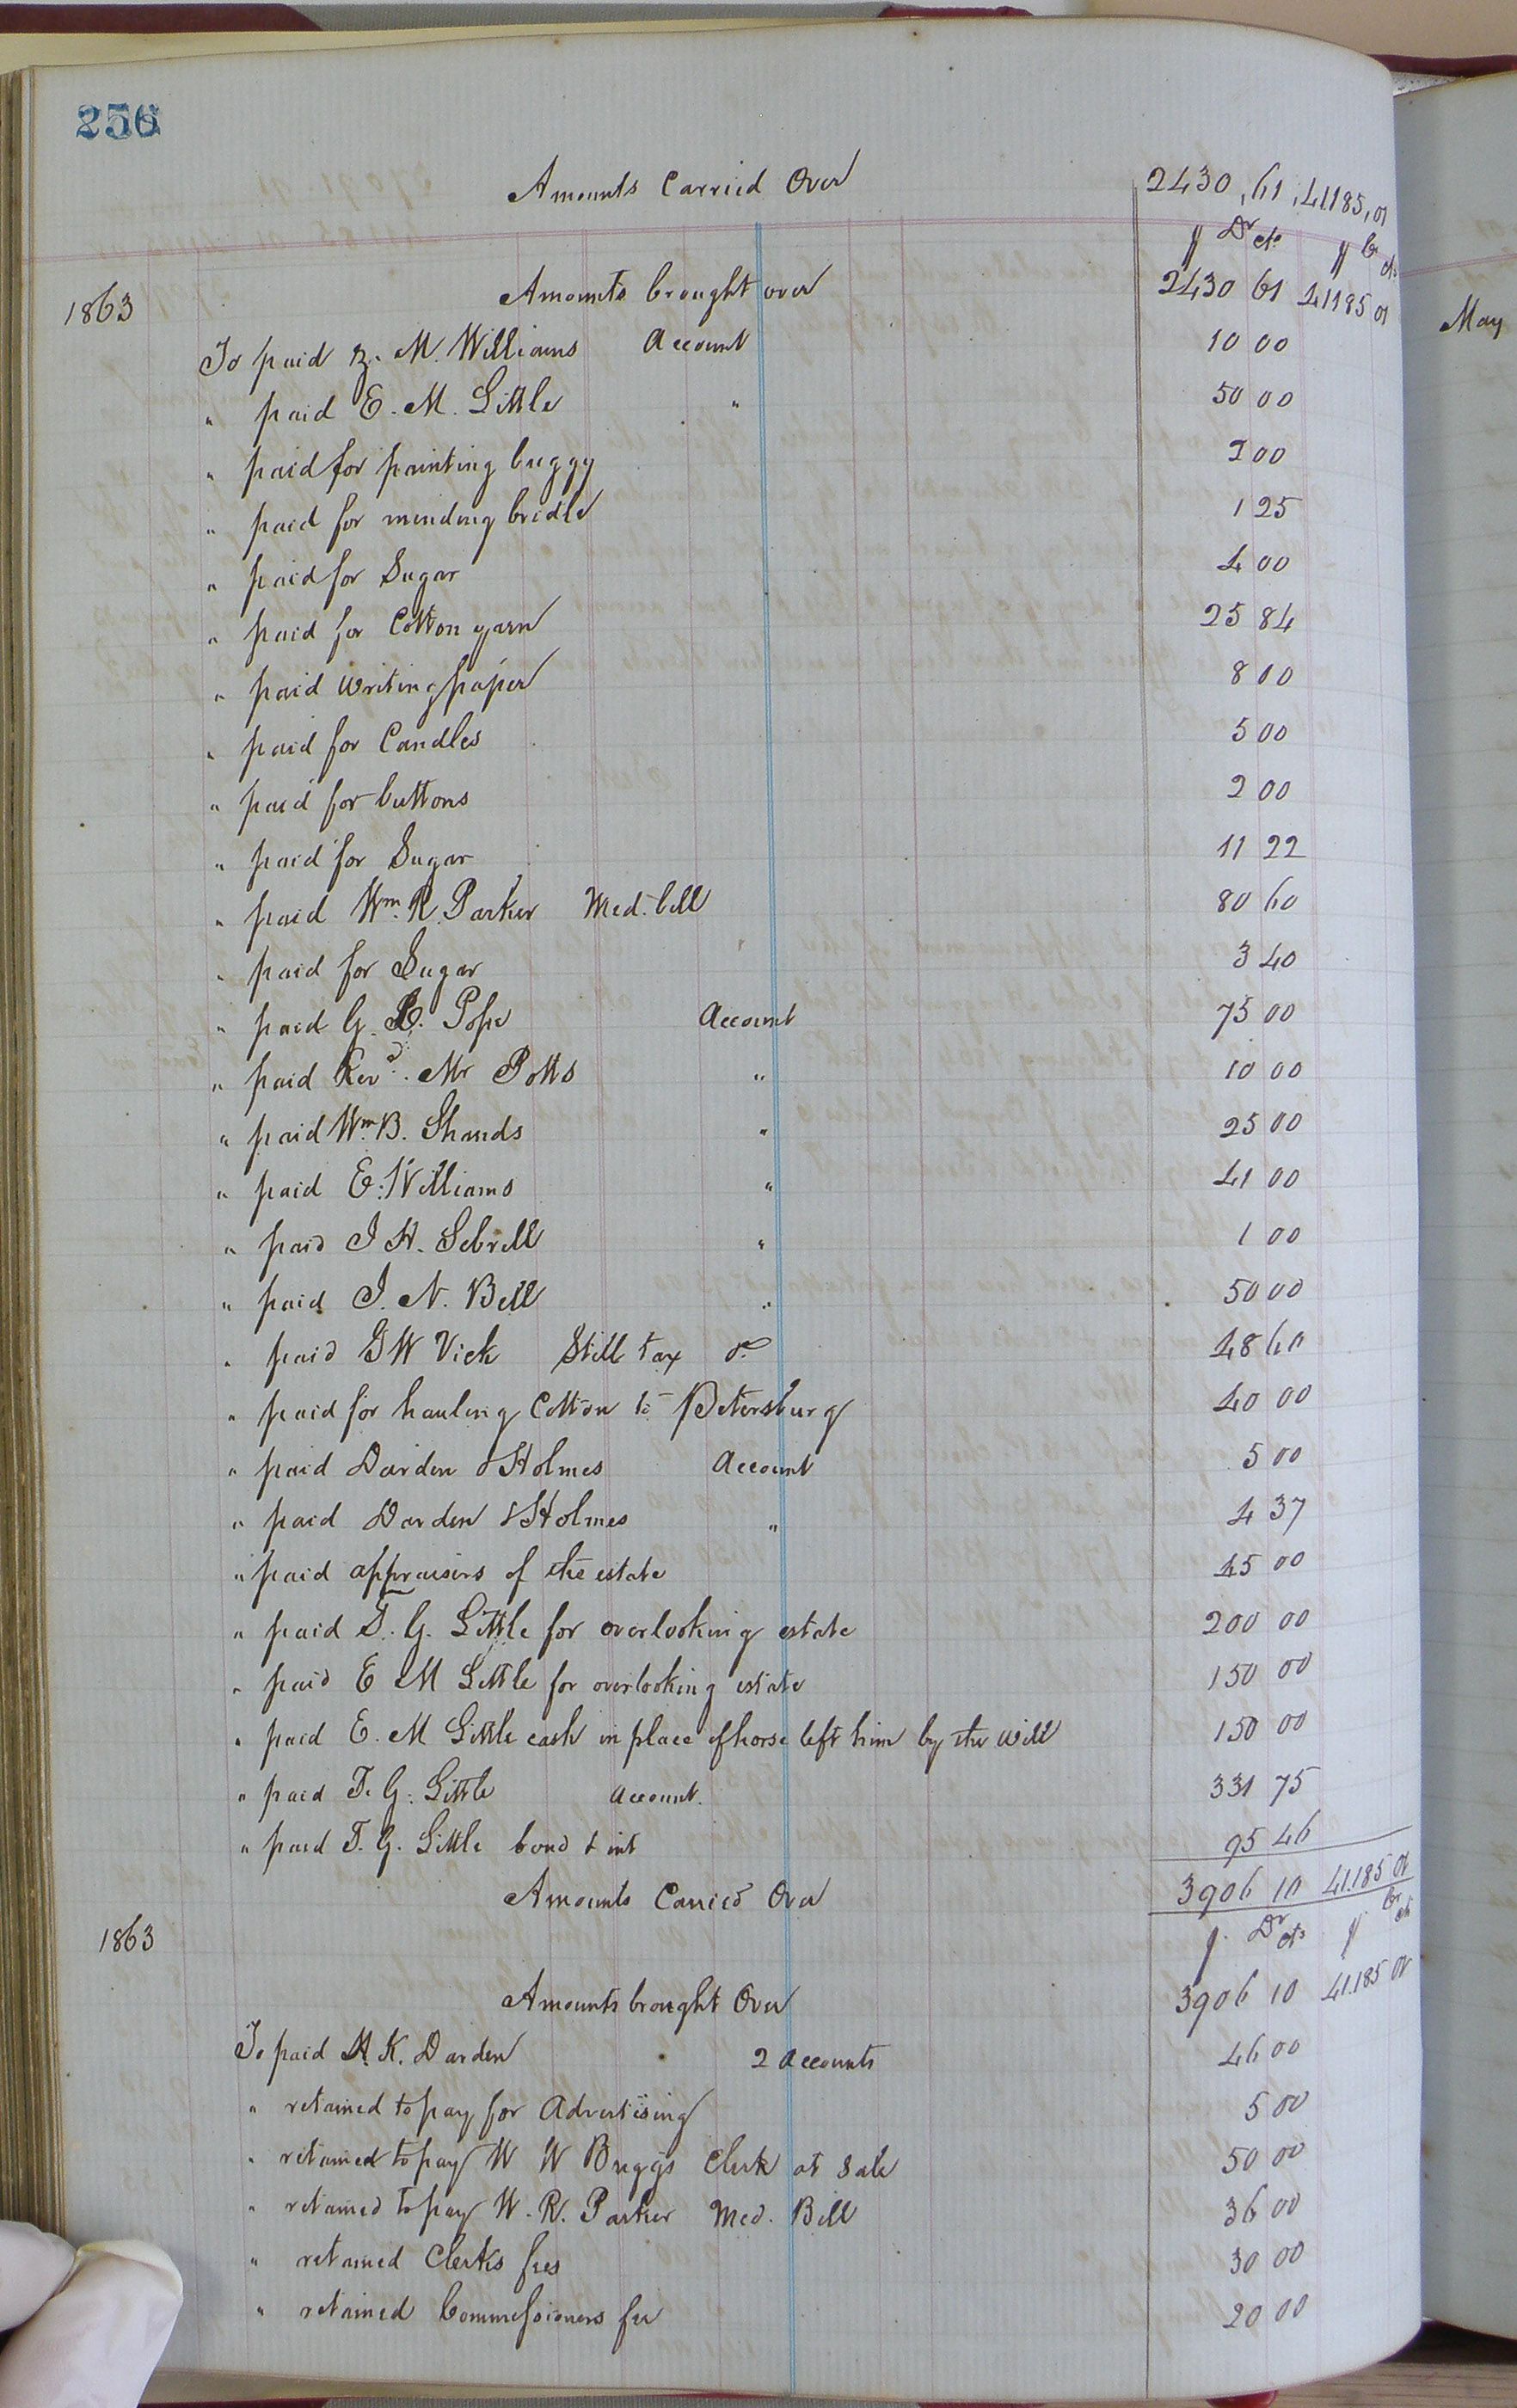 256
Amounts Carried Over 2430,61, 41185,01
$ Dr cts $ Cr cts
1863 Amounts brought over 2430 61 41185 01
To paid M. Williams Account 10 00
" paid E. M. Little " 50 00
" paid for painting buggy 2 00
" paid for mending bridle 1 25
" paid for Sugar 4 00
" paid for Cotton yarn 25 84
" paid writing paper 8 00
" paid for Candles 5 00
" paid for buttons 2 00
" paid for Sugar 11 22
" paid Wm. R. Parker Med. bill 80 60
" paid for Sugar 3 40
" paid G. Pope Account 75 00
" paid Revd. Mr Potts " 10 00
" paid Wm. B. Shands " 25 00
" paid E. Williams " 41 00
" paid J. H. Sebrell " 1 00
" paid J. N. Bell " 50 00
" paid G W Vick Still tax 48 60
" paid for hauling Cotton to Petersburg 40 00
" paid Darden & Holmes Account 5 00
" paid Darden & Holmes " 4 37
" paid appraisers of the estate 45 00
" paid T. G. Little for overlooking estate 200 00
" paid E M Little for overlooking estate 150 00
" paid E. M Little cash in place of horse left him by the will 150 00
" paid T. G. Little Account. 331 75
" paid T. G. Little bond & int 95 46
Amounts Carried Over 3906 10 41.185 01
$ Dr cts $ Cr cts
1863
Amounts brought Over 3906 10 41.185 01
To paid H. K. Darden 2 Accounts 46 00
" retained to pay for Advertising 5 00
" retained to pay W W Briggs Clerk at Sale 50 00
" retained to pay W. R. Parker Med. Bill 36 00
" retained Clerks fees 30 00
" retained Commissioners fee 20 00
May